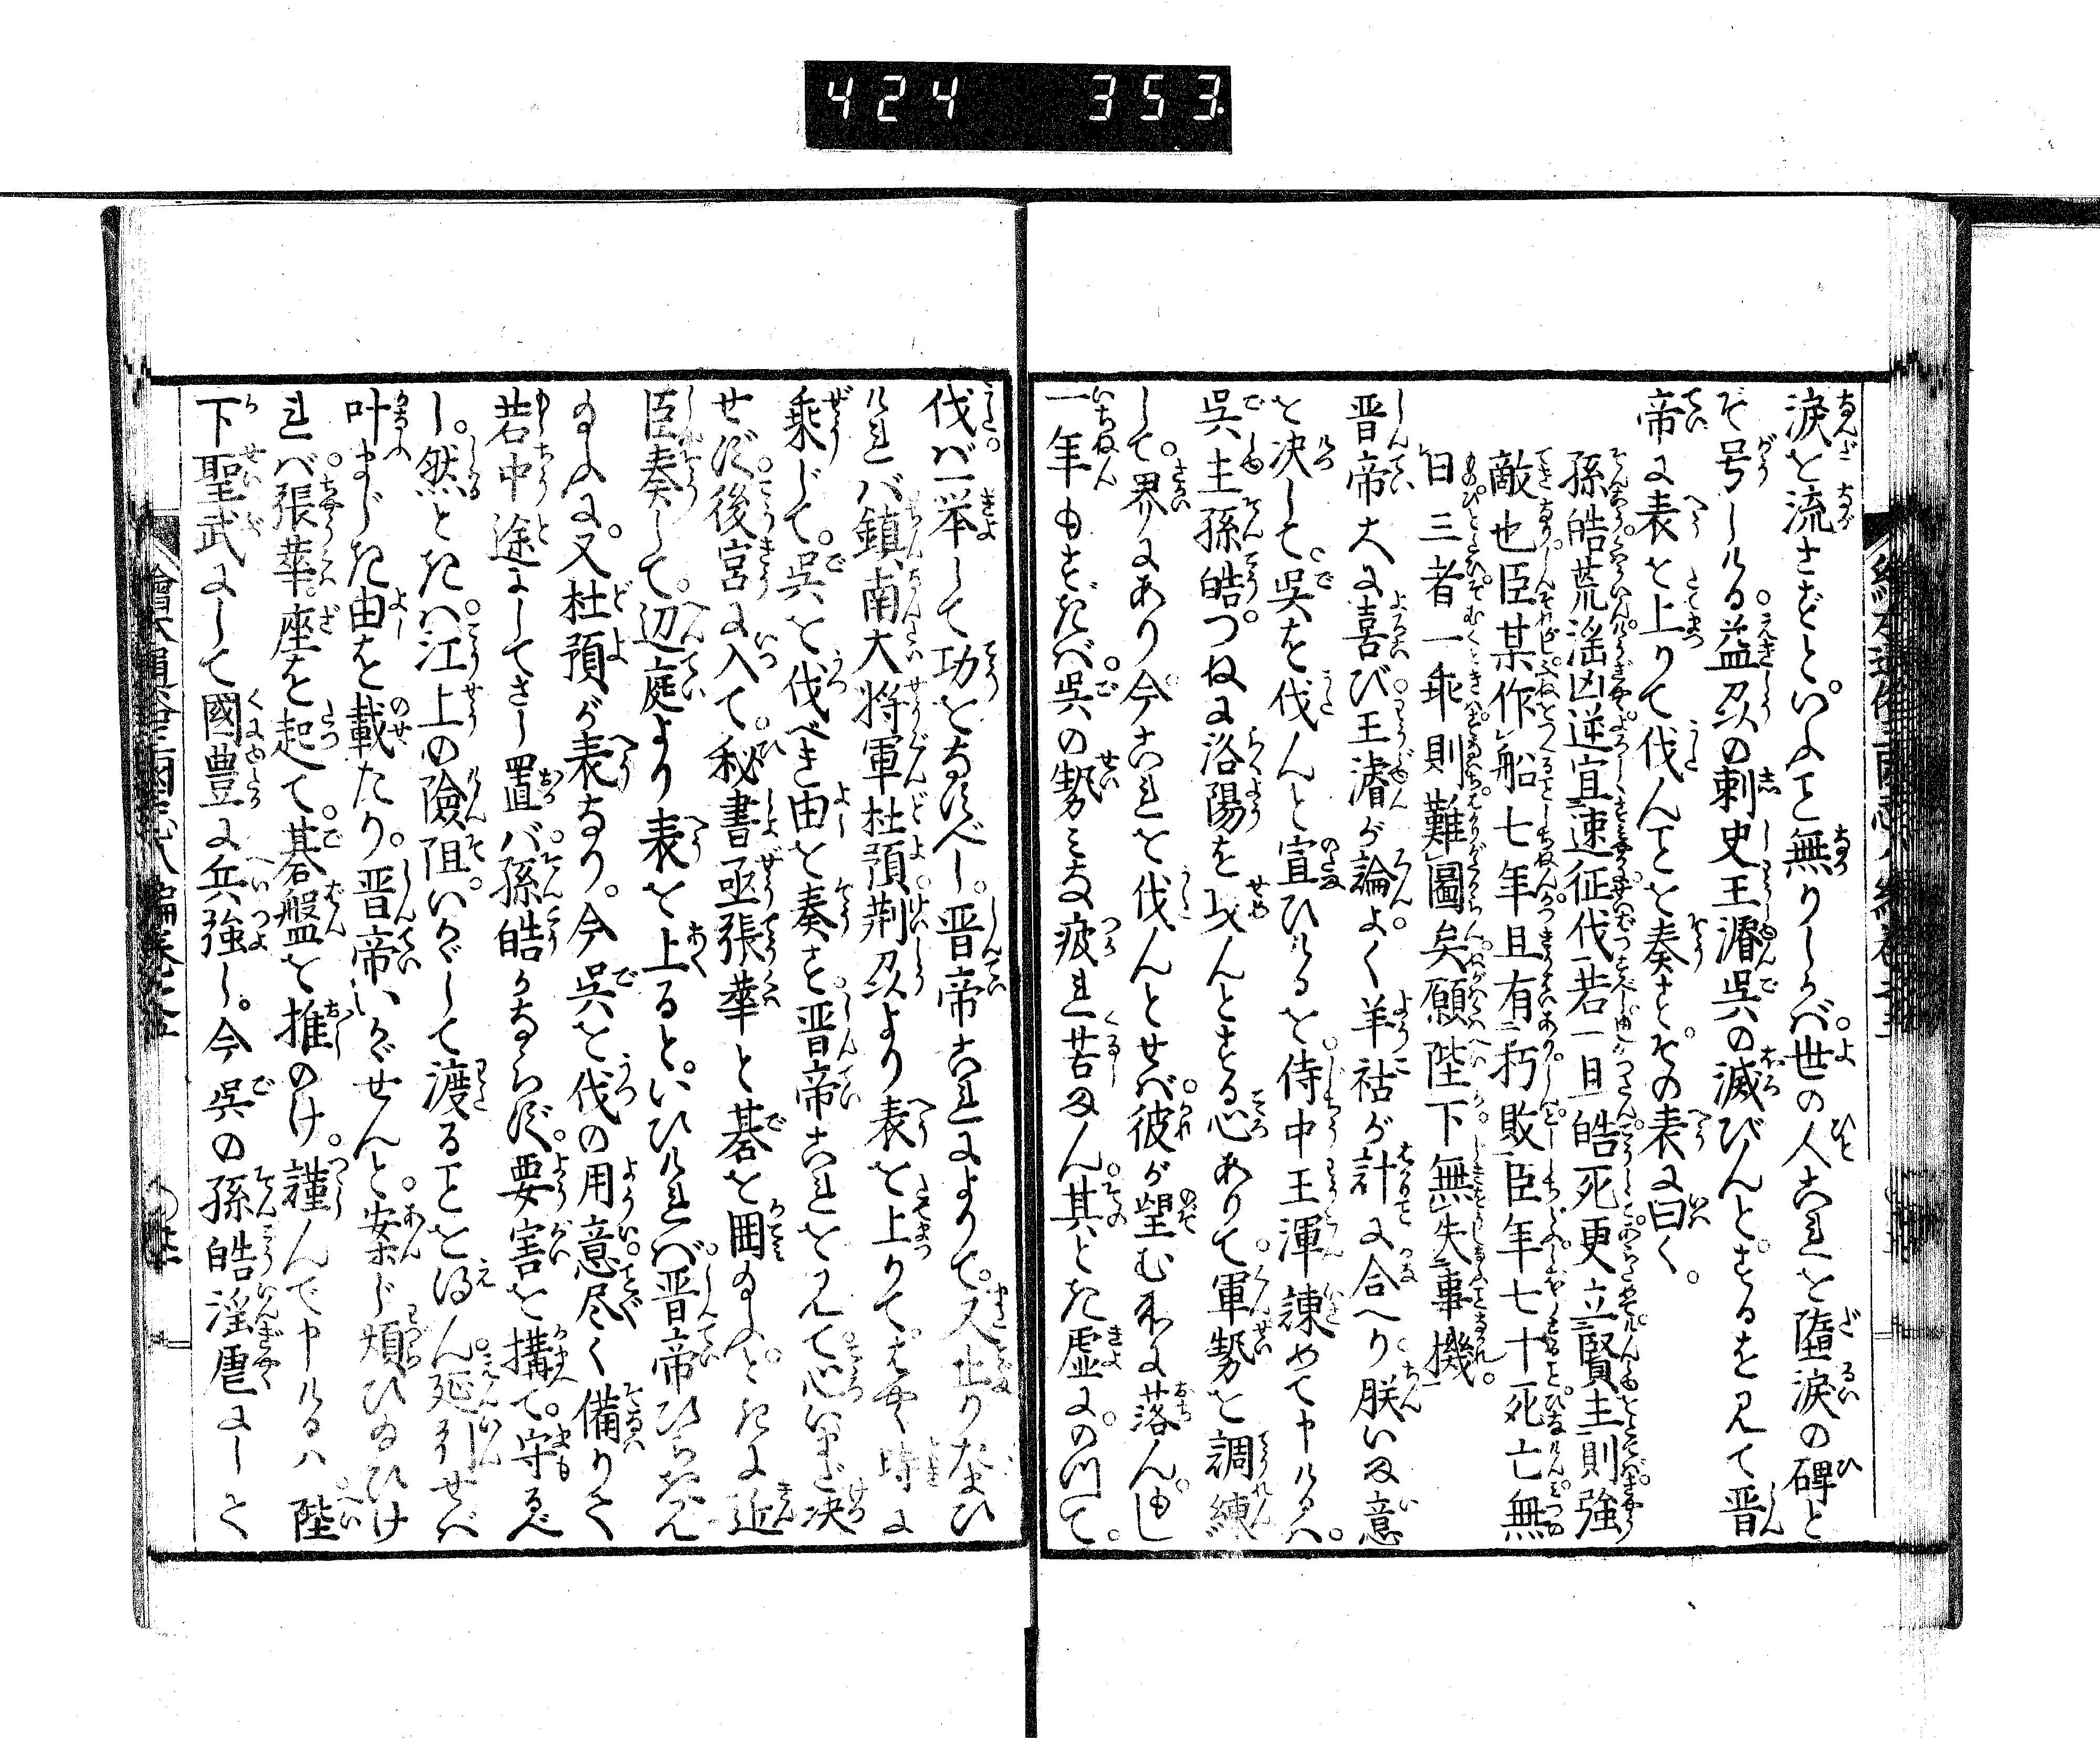 424 353
涙を流さずといふこと無りしかバ。世の人これを堕涙の碑と
ぞ号しける。益州の刺史王濬呉の滅びんとするを見て晋
帝に表を上りて伐んことを奏す。その表に曰く。
孫皓荒淫凶逆宜速征伐若一旦皓死更立賢主則強
敵也臣某作船七年且有朽敗臣年七十死亡無
日三者一乖則難圖矣願陛下無失事機。
晋帝大に喜び。王濬が論よく羊祜が計に合へり。朕いま意
を決して。呉を伐んと宣ひけるを。侍中王渾諌めて申けるハ。
呉主孫皓。つねに洛陽を攻んとする心ありて。軍勢を調練
して。界にあり。今これを伐んとせバ。彼が望む所に落ん。もし
一年もすぎバ。呉の勢ミな疲れ苦まん。其とき虚に乃て。
伐バ一挙して功をなすべし。晋帝これによりて。又止りたまひ
けれバ鎮南大将軍杜預。荊州より表を上りて。はやく時に
乗じて。呉を伐べき由を奏す。晋帝これを見て。心いまだ決
せず。後宮に入て。秘書丞張華と碁を囲みゐたまふときに近
臣奏して。辺庭より表を上ると。いひけれバ。晋帝ひらき見
たまふに。又杜預が表なり。今呉を伐の用意。尽く備りて
若中途にしてさし置バ。孫皓かならず。要害を構て。守るべ
し。然ときハ。江上の險阻。いかゞして渡ることを得ん。延引せバ
叶まじき由を載たり。晋帝いかゞせんと。案じ煩ひゐひけ
れバ。張華。座を起て。碁盤を推のけ。謹んで申けるハ。陛
下聖武にして國豊に兵強し。今呉の孫皓淫虐にして